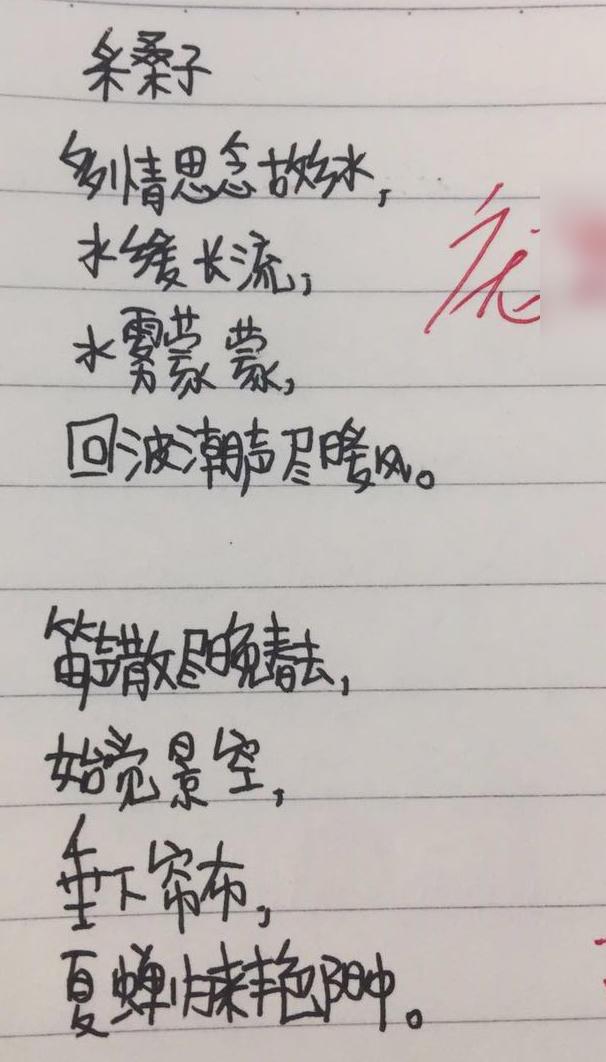 采桑子
多情思念故乡水,
水缓长流,
水雾蒙蒙,
回波潮声尽暖风。
笛声散尽晚春去,
始觉景空,
垂下帘布,
夏蝉归来艳阳中。